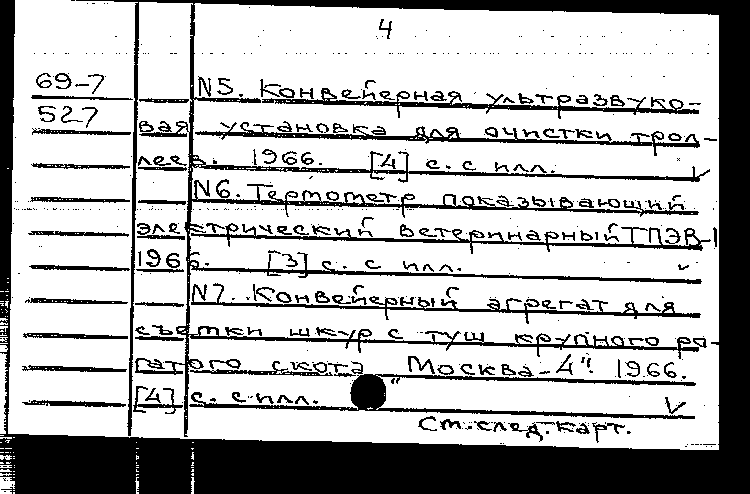 4
69-7 N5. Конвейерная ультразвуко-
527 вая установка для очистки трол-
леев. 1966. [4] с. с илл. ✓
N6. Термометр показывающий
электрический ветеринарный ТПЭВ-1
1966. [3] с. с илл. ✓
N7. Конвейерный агрегат для
съемки шкур с туш крупного ро-
гатого скота „Москва-4". 1966.
[4] с. с илл. ✓
См. след. карт.